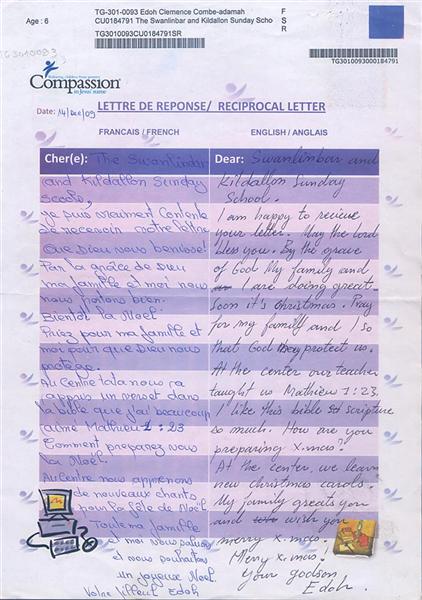 Age : 6
TG-301-0093 Edoh Clemence Combe-adamah
CU0184791 The Swanlinbar and Kildallon Sunday Scho
TG3010093CU0184791SR
F
S
R
TG3010093000184791
TG3010093
Compassion
in Jesus' name
Date: 14/Dec/09
LETTRE DE REPONSE/ RECIPROCAL LETTER
FRANCAIS / FRENCH
Cher(e): The Swanlinbar
and Kildallon Sunday
School,
je suis vraiment contente
de recevoir votre lettre
Que Dieu vous benisse!
Par la grâce de Dieu
ma famille et moi nous
nous portons bien.
Bientôt la Noël.
Priez pour ma famille et
moi pour que Dieu nous
protège.
Au Centre tata nous a
appris un verset dans
la bible que j'ai beaucoup
aimé Mathieu 1:23
Comment preparez vous
la Noël.
Au Centre nous apprenons
de nouveaux chants
pour la fête de Noël
Toute ma famille
et moi vous saluons
et vous souhaitons
un joyeux Noël.
Votre filleul Edoh
ENGLISH / ANGLAIS
Dear: Swanlinbar and
Kildallon Sunday
School.
I am happy to recieve
your letter. May the Lord
bless you. By the grace
of God My family and
I are doing great.
Soon it's christmas. Pray
for my family and I so
that God protect us.
At the center our teacher
taught us Mathieu 1:23.
I like this bible scripture
so much. How are you
preparing X.mas.
At the center, we learn
new christmas carols.
My family greets you
and wish you
merry X.mas.
Merry X.mas!
Your godson
Edoh.